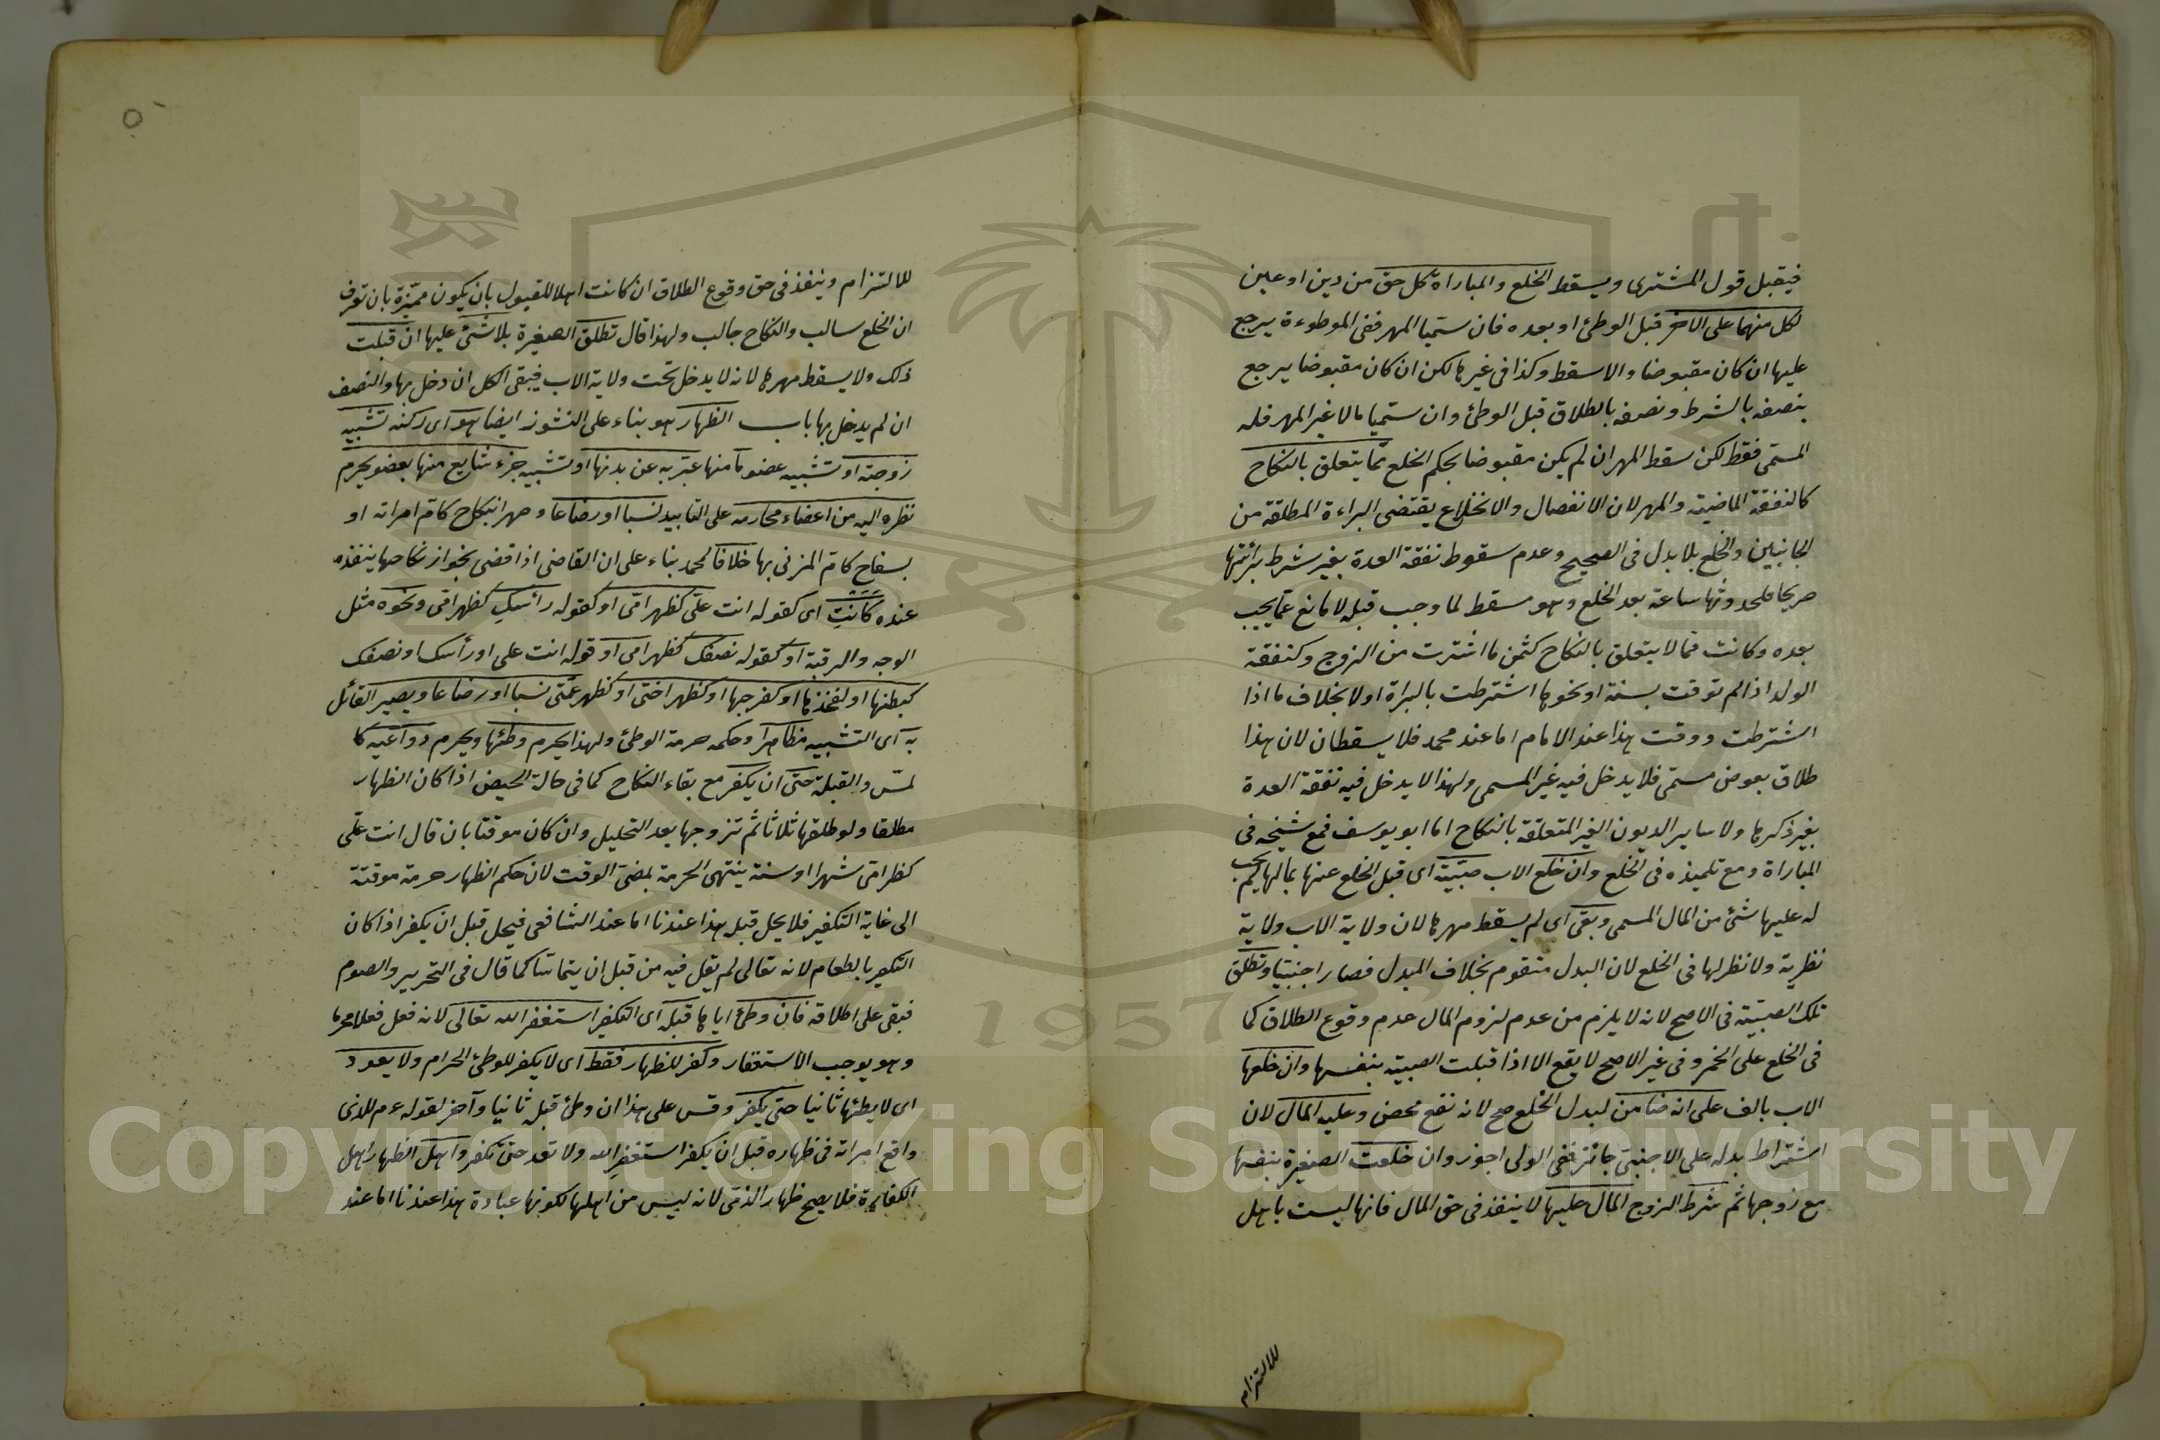 فيقبل قول المشترى ويسقط الخلع والمباراة كل حق من دين او عين
لكل منهما على الآخر قبل الوطئ او بعده فان سميا المهر ففى الموطوءة يرجع
عليها ان كان مقبوضا والا سقط وكذا فى غيرها لكن ان كان مقبوضا يرجع
بنصفه بالشرط ونصفه بالطلاق قبل الوطئ وان سميا مالا غير المهر فله
المسمى فقط لكن سقط المهر ان لم يكن مقبوضا بحكم الخلع مما يتعلق بالنكاح
كالنفقة الماضية والمهر لان الانفصال والانخلاع يقتضى البراءة المطلقة من
الجانبين والخلع بلا بدل فى الصحيح وعدم سقوط نفقة العدة بغير شرط برائتها
صريحا فلحدوثها ساعة بعد الخلع وهو مسقط لما وجب قبله لا مانع عما يجب
بعده وكانت فما لا يتعلق بالنكاح كثمن ما اشترت من الزوج وكنفقة
الولد اذا لم توقت بسنة او نحوها اشترطت بالبراة او لا بخلاف ما اذا
اشترطت ووقت هذا عند الامام اما عند محمد فلا يسقطان لان هذا
طلاق بعوض مسمى فلا يدخل فيه غير المسمى ولهذا لا يدخل فيه نفقة العدة
بغير ذكرها ولا ساير الديون الغير المتعلقة بالنكاح اما ابو يوسف فمع شيخه فى
المباراة ومع تلميذه فى الخلع وان خلع الاب صبيته اى قبل الخلع عنها بمالها لم يجب
له عليها شئ من المال المسمى وبقى اى لم يسقط مهرها لان ولاية الاب ولاية
نظرية ولا نظر لها فى الخلع لان البدل متقوم بخلاف المبدل فصار اجنبيا وتطلق
تلك الصبية فى الاصح لانه لا يلزم من عدم لزوم المال عدم وقوع الطلاق كما
فى الخلع على الخمر وفى غير الاصح لا يقع الا اذا قبلت الصبية بنفسها وان خلعها
الاب بالف على انه ضامن لبدل الخلع صح لانه نفع محض وعليه المال لان
اشتراط بدله على الاجنبى جائز ففى الولى اجوز وان خلعت الصغيرة بنفسها
مع زوجها ثم شرط الزوج المال عليها لا ينفذ فى حق المال فانها ليست باهل
للالتزام
للالتزام وينفذ فى حق وقوع الطلاق ان كانت اهلا للقبول بان يكون مميزة بان تعرف
ان الخلع سالب والنكاح جالب ولهذا قال تطلق الصغيرة بلا شئ عليها ان قبلت
ذلك ولا يسقط مهرها لانه لا يدخل تحت ولاية الاب فيبقى الكل ان دخل بها والنصف
ان لم يدخل بها باب الظهار هو بناء على النشوز ايضا هو اى ركنه تشبيه
زوجته او تشبيه عضو ما منها عبر به عن بدنها او تشبيه جزء شايع منها بعضو يحرم
نظره اليه من اعضاء محارمه على التابيد نسبا او رضاعا وصهرا بنكاح كام امراته او
بسفاح كام المزنى بها خلافا لمحمد بناء على ان القاضى اذا قضى بجواز نكاحها ينفذ
عنده كانت اى كقوله انت على كظهر امى او كقوله رأسك كظهر امى ونحوه مثل
الوجه والرقبة او كقوله نصفك كظهر امى او قوله انت على او رأسك او نصفك
كبطنها او لفخذها او كفرجها او كظهر اختى او كظهر عمتى نسبا او رضاعا ويصير القائل
به اى التشبيه مظاهرا وحكمه حرمة الوطئ ولهذا يحرم وطئها ويحرم دواعيه كا
لمس والقبلة حتى ان يكفر مع بقاء النكاح كما فى حالة الحيض اذا كان الظهار
مطلقا ولو طلقها ثلاثا ثم تزوجها بعد التحليل وان كان موقتا بان قال انت على
كظهر امى شهرا او سنة ينتهى الحرمة بمضى الوقت لان حكم الظهار حرمة موقتة
الى غاية التكفير فلا يحل قبله هذا عندنا اما عند الشافعى فيحل قبل ان يكفر اذا كان
التكفير بالطعام لانه تعالى لم يقل فيه من قبل ان يتماسا كما قال فى التحرير والصوم
فبقى على اطلاقه فان وطئ اياها قبله اى التكفير استغفر الله تعالى لانه فعل فعلا محرما
وهو يوجب الاستغفار وكفر للظهار فقط اى لا يكفر للوطئ الحرام ولا يعود
اى لا يطئها ثانيا حتى يكفر وقس على هذا ان وطئ قبله ثانيا وآخر لقوله ءم للذى
واقع امراته فى ظهاره قبل ان يكفر استغفر الله ولا تعد حتى تكفر واهل الظهار اهل
الكفارة فلا يصح ظهار الذمى لانه ليس من اهلها لكونها عبادة هذا عندنا اما عند
1957
Copyright © King Saud University